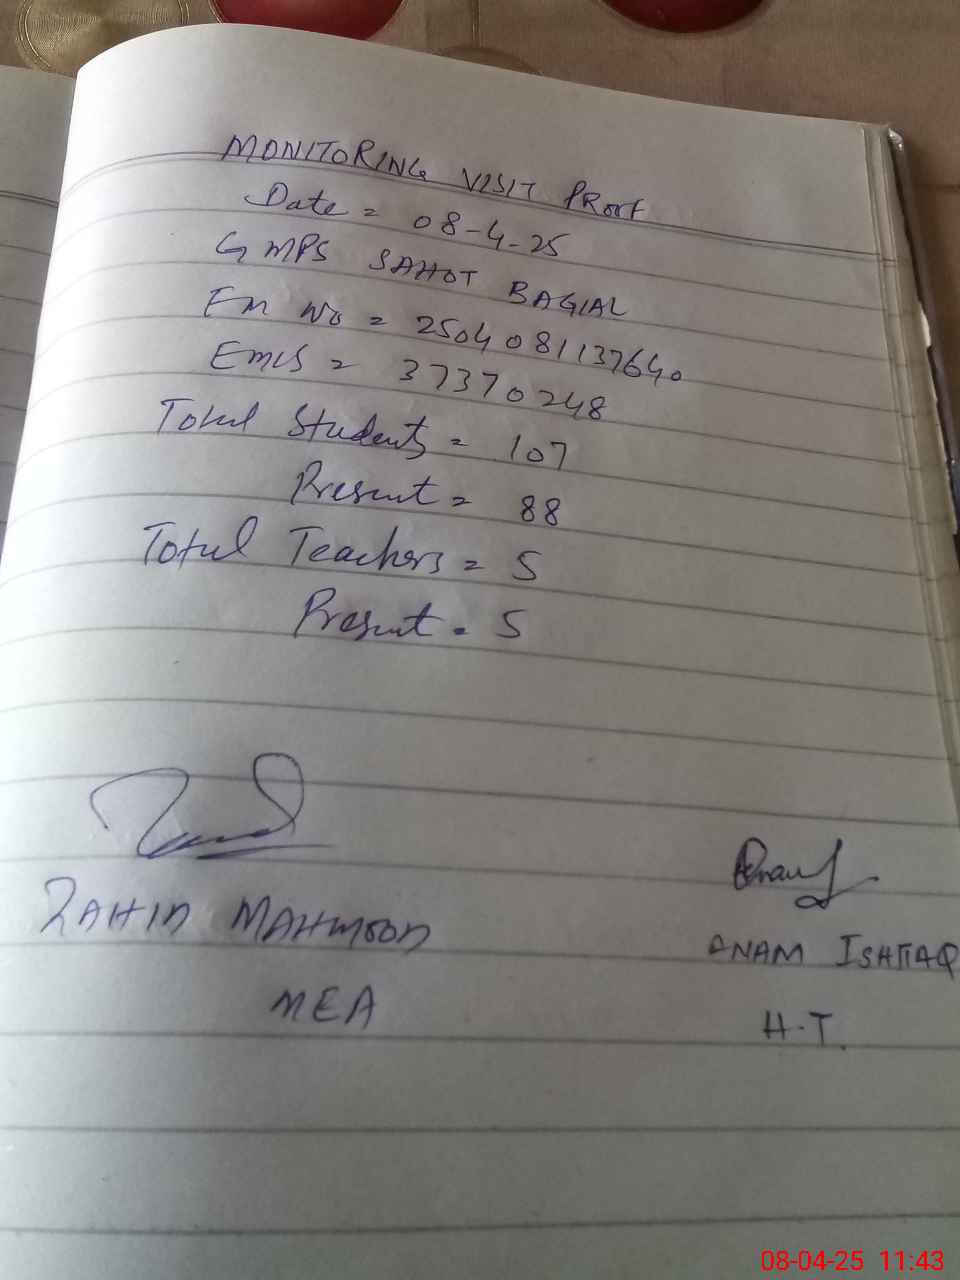 MONITORING VISIT PROOF
Date = 08-4-25
GMPS SAHOT BAGIAL
Em No = 2504081137640
EMIS = 37370248
Total Students = 107
Present = 88
Total Teachers = 5
Present = 5
ZAHID MAHMOOD
MEA
ANAM ISHTIAQ
H.T.
08-04-25 11:43